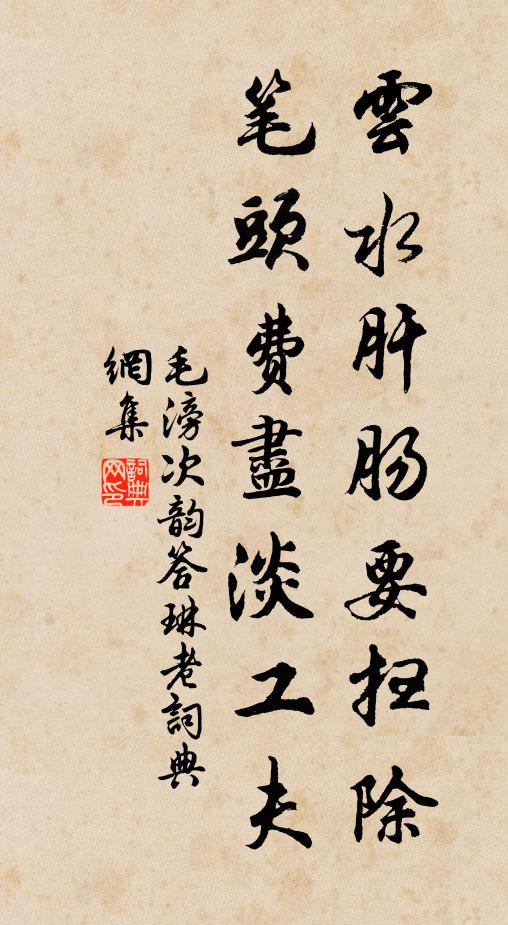 雲水肝肠要扫除
笔頭費盡淡工夫
毛滂次韵答琳老詞典
網集
詞典
网印